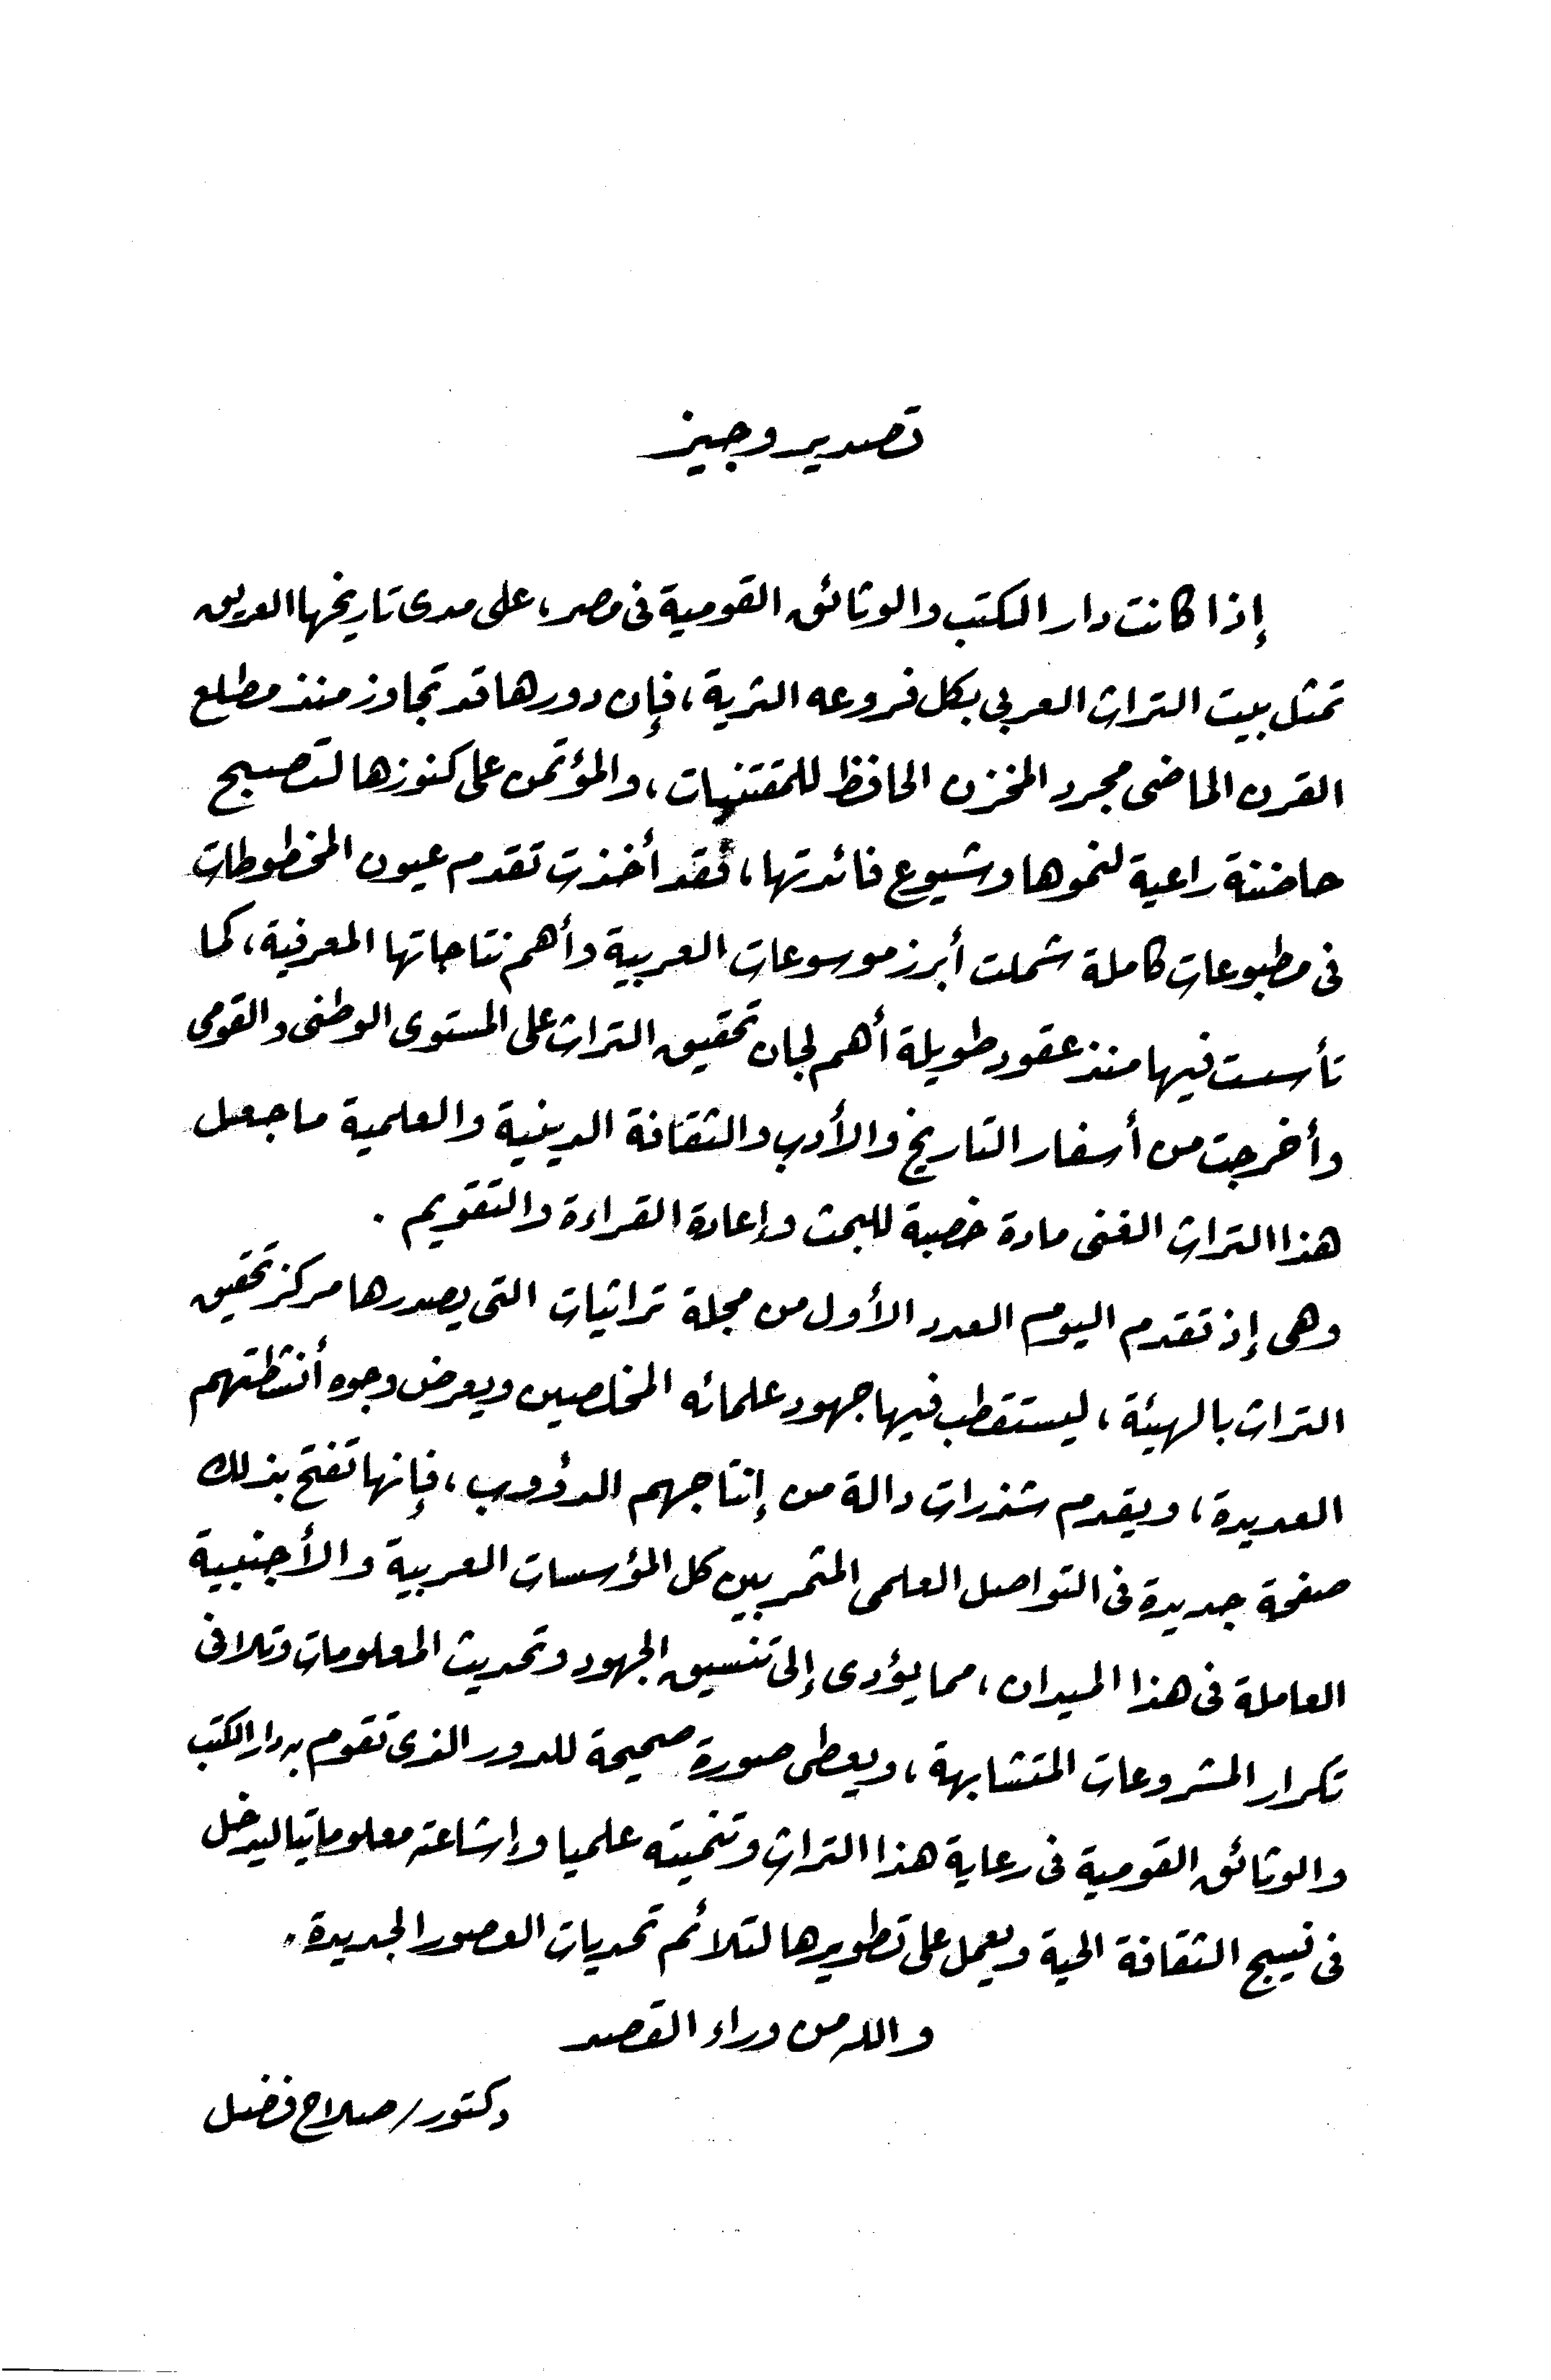 تصدير وجيز
إذا كانت دار الكتب والوثائق القومية فى مصر، على مدى تاريخها العريق
تمثل بيت التراث العربى بكل فروعه الثرية، فإن دورها قد تجاوز منذ مطلع
القرن الماضى مجرد المخزن الحافظ للمقتنيات، والمؤتمن على كنوزها لتصبح
حاضنة راعية لنموها وشيوع فائدتها، فقد أخذت تقدم عيون المخطوطات
فى مطبوعات كاملة شملت أبرز موسوعات العربية وأهم نتاجاتها المعرفية، كما
تأسست فيها منذ عقود طويلة أهم لجان تحقيق التراث على المستوى الوطنى والقومى
وأخرجت من أسفار التاريخ والأدب والثقافة الدينية والعلمية ما جعل
هذا التراث الغنى مادة خصبة للبحث وإعادة القراءة والتقويم .
وهى إذ تقدم اليوم العدد الأول من مجلة تراثيات التى يصدرها مركز تحقيق
التراث بالهيئة، ليستقطب فيها جهود علمائه المخلصين ويعرض وجوه أنشطتهم
العديدة، ويقدم شذرات دالة من إنتاجهم الدؤوب، فإنها تفتح بذلك
صفحة جديدة فى التواصل العلمى المثمر بين كل المؤسسات العربية والأجنبية
العاملة فى هذا الميدان، مما يؤدى إلى تنسيق الجهود وتحديث المعلومات وتلافى
تكرار المشروعات المتشابهة، ويعطى صورة صحيحة للدور الذى تقوم به دار الكتب
والوثائق القومية فى رعاية هذا التراث وتنميته علميا وإشاعته معلوماتيا ليدخل
فى نسيج الثقافة الحية ويعمل على تطويرها لتلائم تحديات العصور الجديدة .
والله من وراء القصد
دكتور/ صلاح فضل